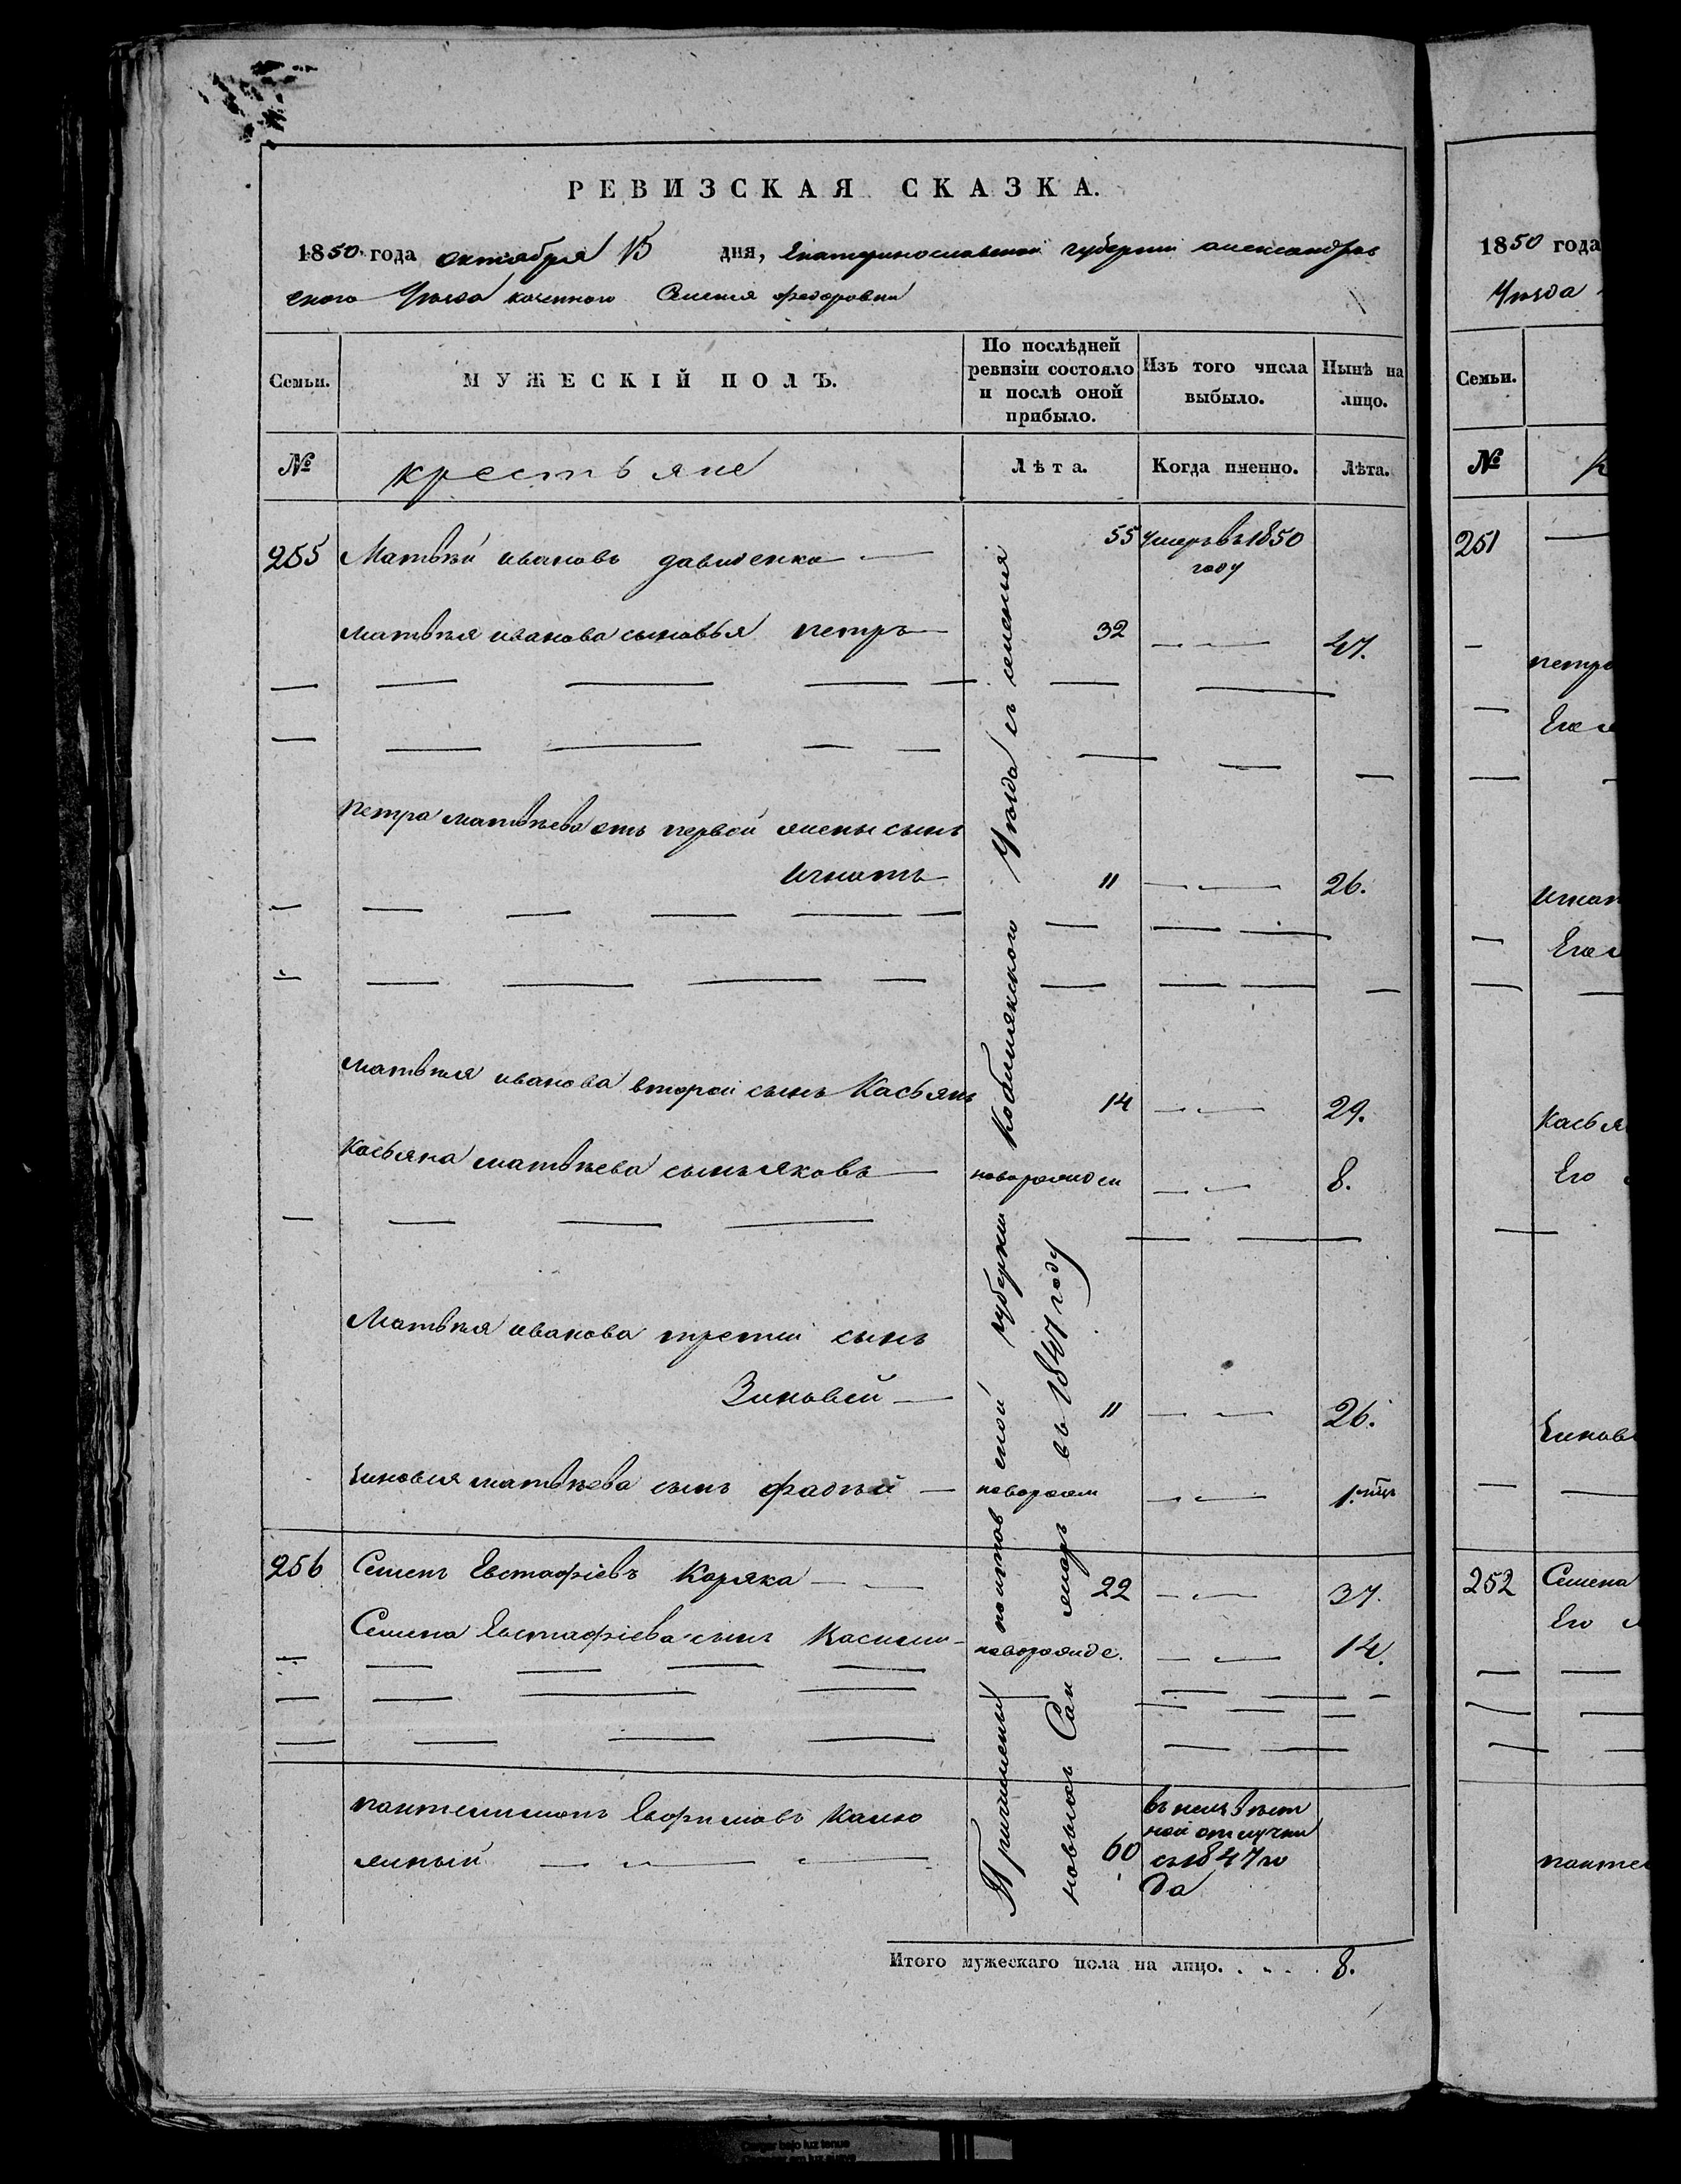 РЕВИЗСКАЯ СКАЗКА.
1850 года октября 15 дня, Екатеринославской губернии александров
ского Уѣзда казенного Селения федоровки
Семьи.
МУЖЕСКІЙ ПОЛЪ.
По послѣдней ревизіи состояло и послѣ оной прибыло.
Изъ того числа выбыло.
Нынѣ на лицо.
№ крестьяне Лѣта. Когда именно. Лѣта.
255 Матвѣй ивановъ давиденко 55 Умеръ въ 1850
году
матвѣя иванова сыновья петръ 32 47.
петра матвѣева отъ первой жены сынъ
игнатъ " 26.
матвѣя иванова второй сынъ Касьянъ 14 29.
касьяна матвѣева сынъ яковъ новорожден 8.
Матвѣя иванова третий сынъ
Зиновей " 26.
зиновия матвѣева сынъ фадѣй новорожен 1.
256 Семенъ Евстафіевъ Коряка 22 37.
Семена Евстафіева сынъ новорожде. 14.
пантелимонъ Ефимовъ Калю
жный 60 въ неизвѣст
ной отлучки
съ 1847 го
да
Причислены полтав ской губернии Кобилякского Уѣзда съ селения
новыхъ Сан жаръ въ 1847 году
Итого мужескаго пола на лицо. . . . . 8.
1850 года
Уѣзда
Семьи.
№
251
петра
Его
игнат
Его
касья
Его
зинов
252 Семена
Его
панте